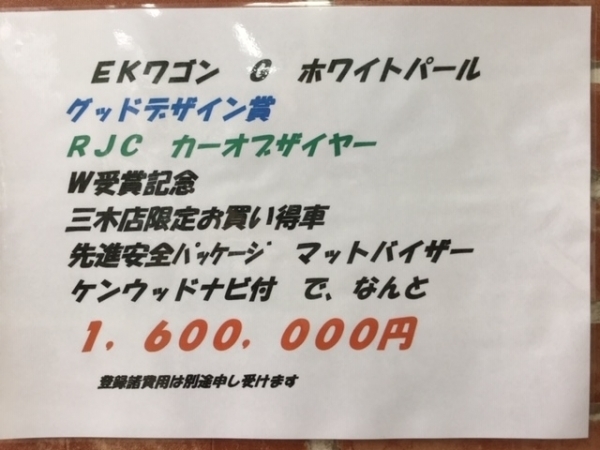 EKワゴン G ホワイトパール
グッドデザイン賞
RJC カーオブザイヤー
W受賞記念
三木店限定お買い得車
先進安全ﾊﾟｯｹｰｼﾞ マットバイザー
ケンウッドナビ付 で、なんと
1，600，000円
登録諸費用は別途申し受けます